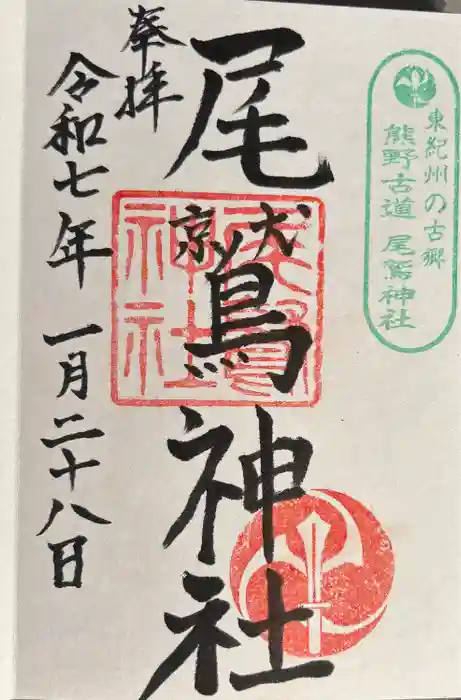 東紀州の古郷
熊野古道 尾鷲神社
奉拝
尾鷲神社
令和七年 一月二十八日